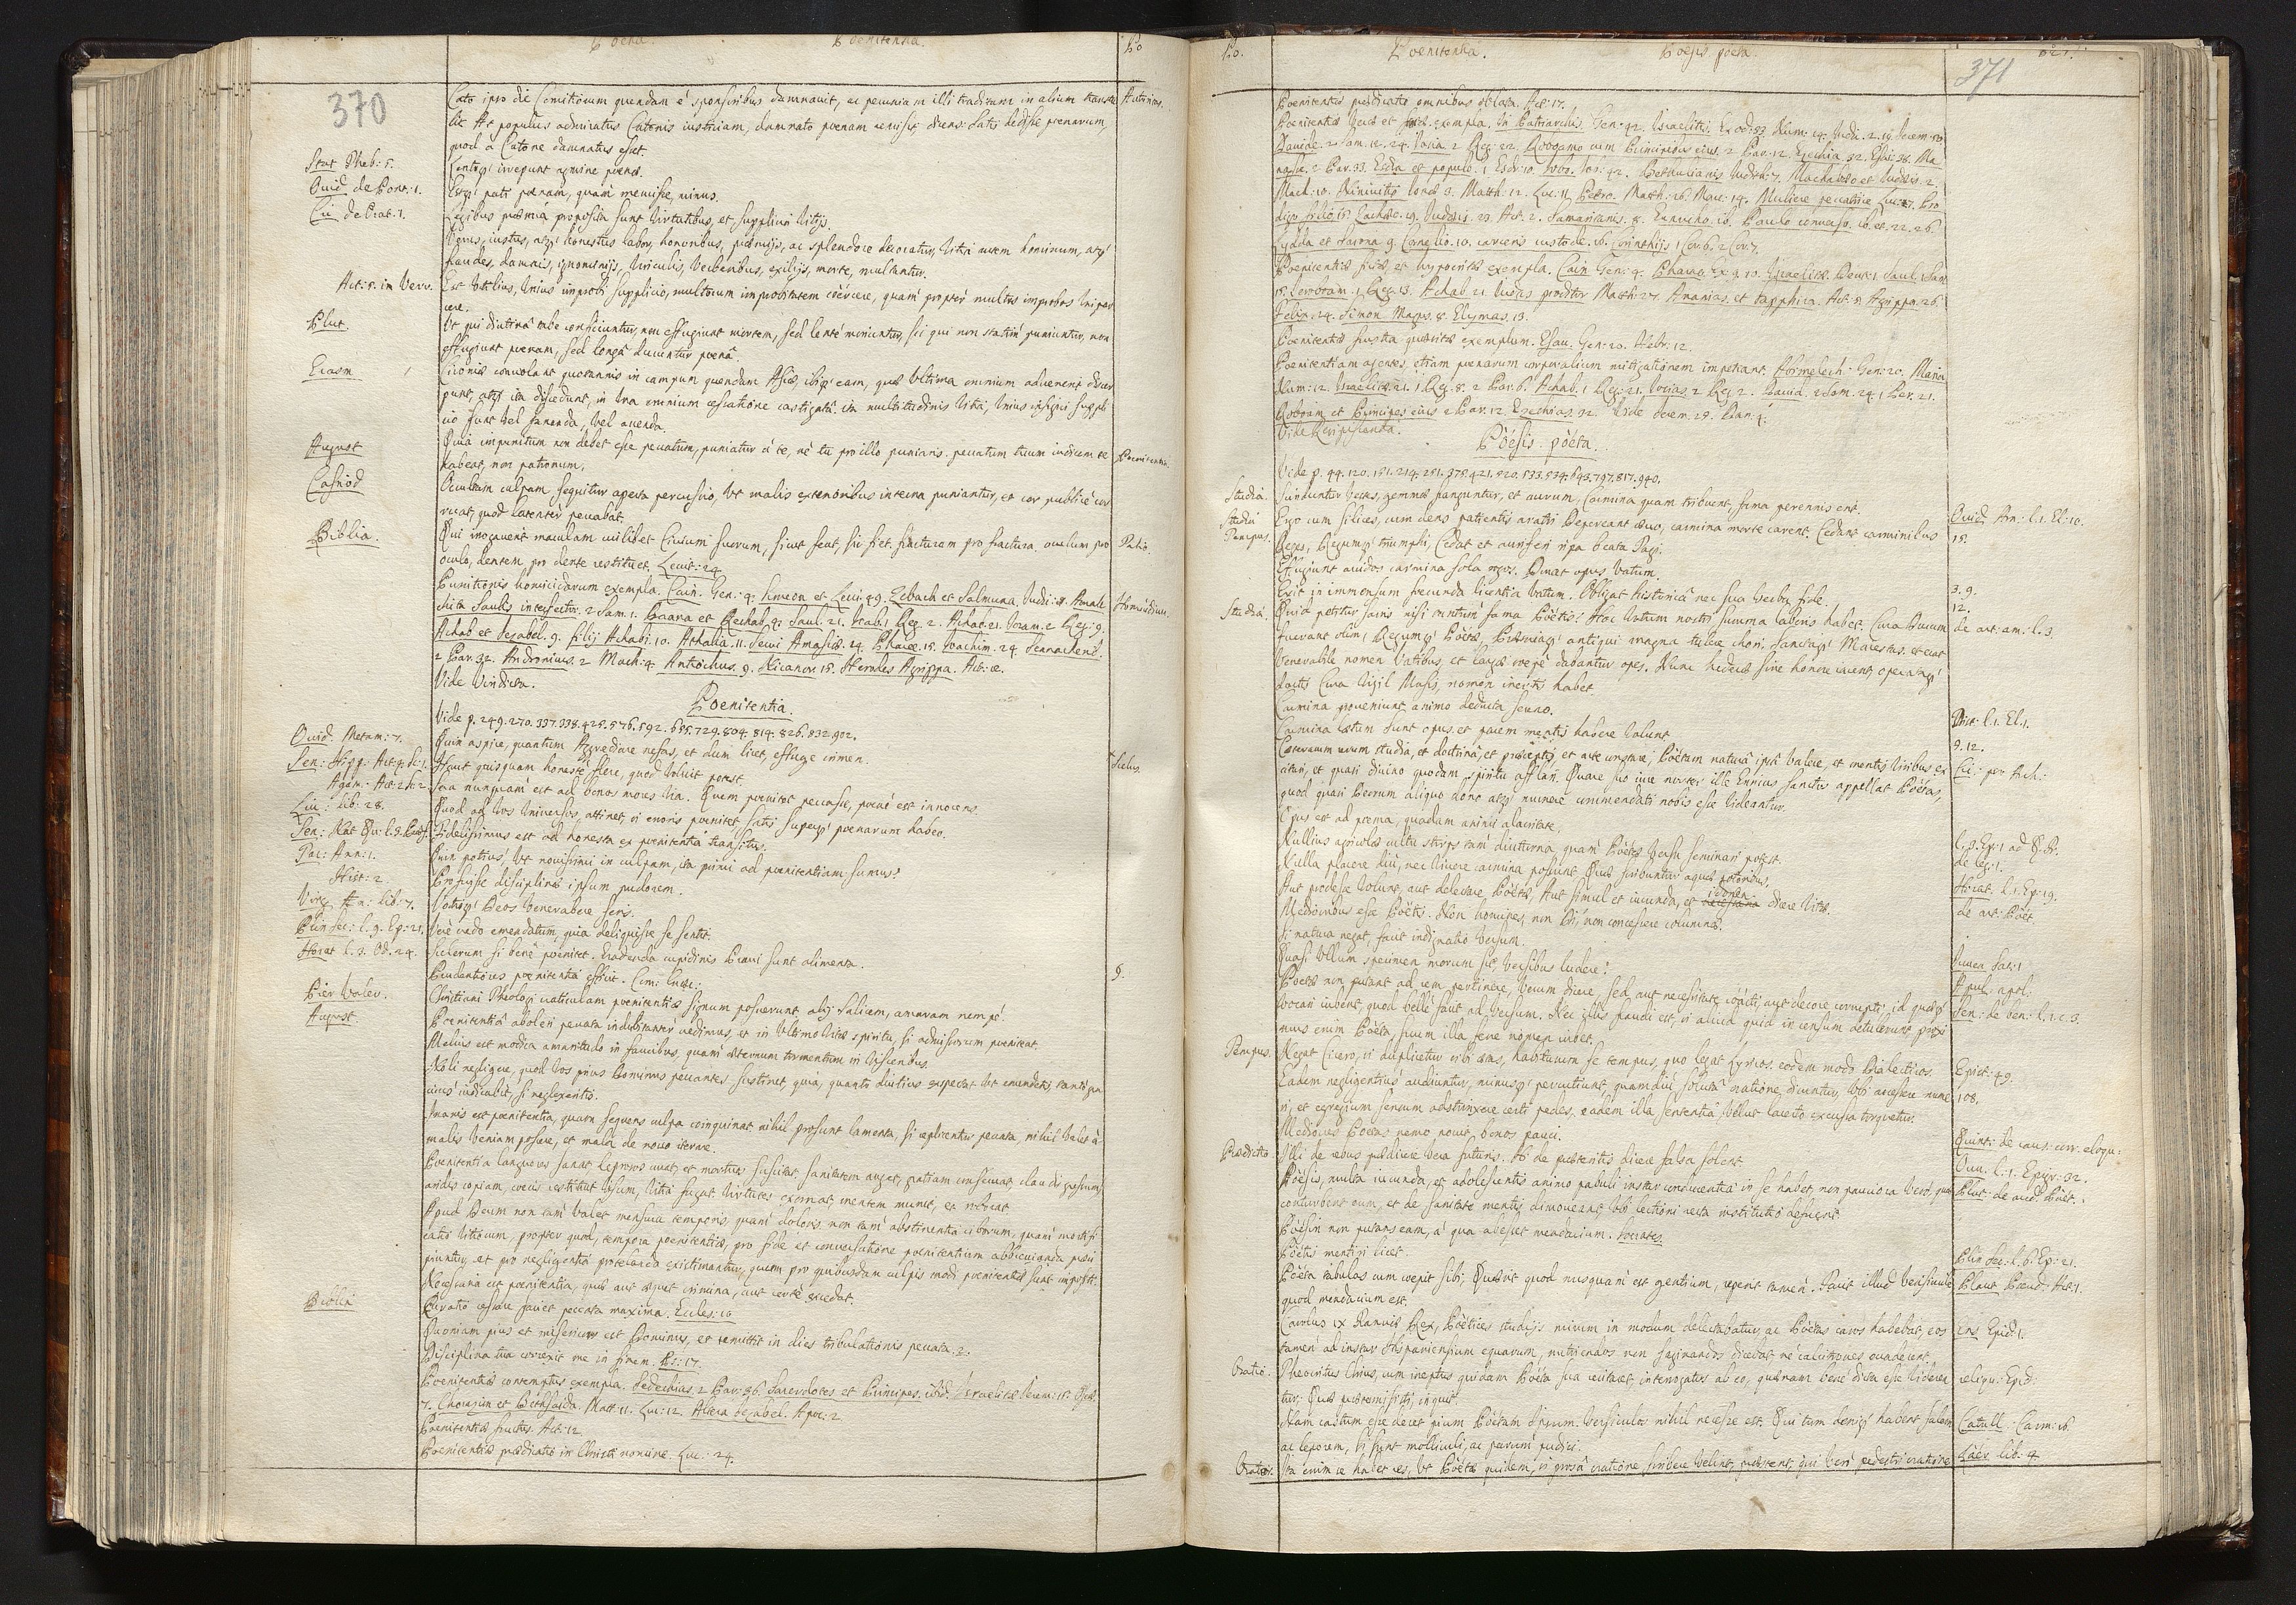 Poena. Poenitentia. Po
370
Cato ipso die Comitiorum quendam è sponsoribus damnauit, ac pecuniam illi traditam in alium transtu
lit. At populus admiratus Catonis iustitiam, damnato poenam remisit, dicens: satis dedisse poenarum,
quod a Catone damnatus esset.
Stat Theb: 5. Lentoq; irrepunt agmine poenae.
Ouid. de Pont: 1. Estq; pati poenam, quam meruisse, minus.
Cic. de Orat: 1. Legibus praemia proposita sunt virtutibus, et supplicia vitijs.
Verus, iustus, atq; honestus labor, honoribus, praemijs, ac splendore decoratur, vitia autem hominum, atq;
fraudes, damnis, ignominijs, vinculis, verberibus, exilijs, morte, multantur.
Act: 5. in Verr. Est vtilius, vnius improbi supplicio, multorum improbitatem coërcere, quam propter multos improbos vni par
cere.
Plut. Vt qui diutina tabe conficiuntur, non effugiunt mortem, sed lentè moriuntur, sic qui non statim puniuntur, non
effugiunt poenam, sed longa ducuntur poena.
Erasm Ciconiae conuolant quotannis in campum quendam Asiae, ibiq; eam, quae vltima omnium aduenerit, discer
punt, atq; ita discedunt, in vna omnium cessatione castigata. ita multitudinis vitia, vnius insigni suppli
cio sunt vel sananda, vel auenda.
August Quia impunitum non debet esse peccatum, puniatur à te, nè tu pro illo puniaris. peccatum tuum iudicem te
habeat, non patronum.
Poenitentia.
Casiod Occultam culpam sequitur aperta percussio, vt malis exterioribus interna puniantur, et cor publicè cor
ruat, quod latenter peccabat.
Biblia. Qui irrogauerit maculam cuilibet Ciuium suorum, sicut fecit, sic fiet. fracturam pro fractura. oculum pro
oculo, dentem pro dente restituet. Leuit: 24
Punitionis homicidarum exempla. Cain. Gen: 4. Simeon et Leui. 49. Zebach et Salmuna. Iudic: 8. Amale
Homicidium.
chita Saulis interfector. 2 Sam. 1. Baana et Rechab. 4. Saul. 21. Ioab. 1 Reg. 2. Achab. 21. Ioram. 2 Reg: 9.
Achab et Iezabel. 9. filij Achabi. 10. Athalia. 11. Serui Amasiae. 14. Phacee. 15. Ioachim. 24. Sennacherib.
2 Par. 32. Andronicus. 2 Mach: 4. Antiochus. 9. Nicanor. 15. Herodes Agrippa. Act: 12.
Vide Vindicta.
Poenitentia.
Vide p. 249. 270. 337. 338. 425. 576. 592. 655. 729. 804. 814. 826. 832. 902.
Ouid. Metam: 7. Quin aspice, quantum Aggrediare nefas, et dum licet, effuge crimen.
Sen: Hipp: Haut quisquam honestè flere, quod voluit potest
Scelus.
Agam: Act: 2. sc: 2 Sera nunquam est ad bonos mores via. Quem poenitet peccasse, poene est innocens.
Liu: lib: 28. Quod ad vos vniuersos attinet, si erroris poenitet satis superq; poenarum habeo.
Sen: Nat Qu: l. 3. Fidelissimus est ad honesta ex poenitentia transitus.
Tac: Ann: 1. Quin potius, vt nouissimi in culpam, ita primi ad poenitentiam sumus?
Hist: 2 Profuisse disciplinae ipsum pudorem.
Virg. Aen: lib: 7. Votisq; Deos venerabere seris.
Plin sec: l. 9. Ep: 21. Verè credo emendatum, quia deliquisse se sentit.
Horat l. 3. Od. 24. Scelerum si benè poenitet. Eradenda cupidinis Praui sunt elimenta.
Prudentiores poenitentia efficit.
Pier Valer. Christiani Theologi craticulam poenitentiae signum posuerunt. alij Salicem, amaram nempè.
August. Poenitentia aboleri peccata indubitanter credimus, et in vltimo vitae spiritu, si admissorum poeniteat.
Melius est modica amaritudo in faucibus, quam aeternum tormentum in visceribus.
Noli negligere, quod vos prius Dominus peccantes sustinet, quia, quanto diutius expectat vt emendetis, tantò gra
uius iudicabit, si neglexeritis.
Inanis est poenitentia, quam sequens culpa coinquinat nihil prosunt lamenta, si replicentur peccata, nihil valet à
malis veniam poscere, et mala de nouo iterare.
Poenitentia languores sanat, leprosos curat, et mortuos suscitat, sanitatem auget, gratiam conseruat, claudis gressum,
aridis copiam, coecis restituit visum, vitia fugat, virtutes exornat, mentem munit, et roborat
Apud Deum non tam valet mensura temporis, quam doloris. non tam abstinentia ciborum, quam mortifi
catio vitiorum, propter quod, tempora poenitentiae, pro fide et conuersatione poenitentium abbreuianda praeci
piuntur, et pro negligentia protelanda existimantur, quem pro quibusdam culpis modi poenitentiae sunt impositi.
Necessaria est poenitentia, quae aut aequet crimina, aut certè excedat.
Biblia Curatio cessare faciet peccata maxima. Eccles: 10
Quoniam pius et misericors est Dominus, et remittit in dies tribulationis peccata. 2.
Disciplina tua correxit me in finem. Ps: 17.
Poenitentiae contemptus exempla. Sedechias. 2 Par: 36. Sacerdotes et Principes. ibid. Israelitae. Ierem: 18. Osee
7. Chorazin et Bethsaida. Matt: 11. Luc: 12. Altera Iezabel. Apoc: 2
Poenitentiae fructus. Act: 12.
Poenitentiae praedicatio in Christi nomine. Luc: 24.
Po. Poenitentia. Poesis. poëta
371
Poenitentia praedicatio omnibus oblata. Act: 17.
Poenitentiae verae et exempla. In Patriarchis. Gen: 42. Israelitis. Exod: 33. Num: 14. Iudic. 2.
Dauide. 2 Sam. 12. 24. Iosia 2 Reg: 22. Roogamo cum Principibus eius. 2 Par. 12. Ezechia. 32. Esai: 38. Ma
nasse. 2 Par. 33. Esdra et populo. 1 Esdr: 10. Iobo. Iob: 42. Bethulianis. Iudith: 7. Machabeo et Iudaeis. 2
Mach: 10. Niniuitis. Ionae 3. Matth. 12. Luc: 11. Petro. Matth: 26. Marc: 14. Muliere peccatrice Luc: 7. Pro
digo filio. 15. Zachaeo. 19. Iudaeis. 23. Act. 2. Samaritanis. 8. Eunucho. ib. Paulo conuerso. ib. et. 22. 26.
Lydda et Sarona 9. Cornelio. 10. carceris custode. 16. Corinthijs 1 Cor. 6. 2 Cor. 7.
Poenitentiae fictae et hypocritae exempla. Cain Gen: 4. Pharao Ex. 9. 10. Israelitae. Deut: 1. Saul. 1 Sam
15. Ieroboam. 1 Reg. 13. Achab 21. Iudas proditor Matth: 27. Ananias, et Sapphira. Act: 5. Agrippa. 26.
Felix. 24. Simon Magus. 8. Elymas. 13.
Poenitentiae frustra quaesitae exemplum. Esau. Gen: 20. Hebr: 12.
Poenitentiam agentes, etiam poenarum corporalium mitigationem impetrant. Abimelech. Gen: 20. Maria
Num: 12. Israelitae. 21. 1 Reg. 8. 2 Par. 6. Achab. 1 Reg: 21. Iosias. 2 Reg. 2. Dauid. 2 Sam. 24. 1 Par. 21.
Roboam et Principes eius 2 Par. 12. Ezechias. 32. Vide Ierem. 29. Dan: 4.
Vide Resipiscentia.
Poësis. poëta.
Vide p. 44. 120. 151. 214. 251. 375. 421. 520. 533. 534. 643. 797. 817. 940.
Studia. Scinduntur vestes, gemmae franguntur, et aurum, Carmina quam tribuent, fama perennis erit. Ouid Am: l. 1. El: 10.
Studia Tempus. Ergo cum silices, cum dens patientis aratri Depereant aeuo, carmina morte carent. Cedant carminibus 15.
Reges, Regumq; triumphi, Cedat et auriferi ripa beata Tagi.
Effugiunt auidos carmina sola rogos. Durat opus vatum. 3. 9.
Exit in immensum foecunda licentia vatum. Obligat historica nec sua verba fide. 12.
Studia Quid petitur sacris nisi tantum fama Poëtis? Hoc votum nostri summa laboris habet. Cura Ducum de art: am: l. 3.
fuerant olim, Regumq; Poëtae, Praemiaq; antiqui magna tulere chori. Sanctaq; Maiestas, et erat
Venerabile nomen Vatibus, et largae saepè dabantur opes. Nunc hederae sine honore iacent, operataq;
doctis Cura vigil Musis, nomen inertis habet
Carmina proueniunt animo deducta sereno. Trist: l. 1. El. 1.
Carmina laetum Sunt opus, et pacem mentis habere volunt 5. 12.
Caeterarum rerum studia, et doctrina, et praeceptis et arte constare; Poëtam natura ipsa valere, et mentis viribus ex Cic: pro Arch:
citari, et quasi diuino quodam spiritu afflari. Quare suo iure noster ille Ennius sanctos appellat Poëtas,
quod quasi Deorum aliquo dono atq; munere commendati nobis esse videantur.
Opus est ad poema, quadam animi alacritate.
Nullius agricolae cultu stirps tam diuturna, quam Poëtae versu seminari potest. de leg: 1.
Nulla placere diu, nec viuere carmina possunt, Quae scribuntur aquae potoribus. Horat. l. 1. Ep: 19.
Aut prodesse volunt, aut delectare Poëtae, Aut simul et iucunda, et idonea dicere vitae. de art: Poët
Mediocribus esse Poëtis. Non homines, non Dij, non concessere columnae.
Si natura negat, facit indignatio versum. Iuuen Sat: 1
Quasi vllum specimen morum sit, versibus ludere? Apul. apol:
Poëtae non putant ad rem pertinere, verum dicere, sed aut necessitate coacti, aut decore corrupti, id quemq; Sen: de ben: l. 1. c. 3.
vocari iubent, quod bellè facit ad versum. Nec illis fraudi est, si aliud quid in censum detulerunt. proxi
mus enim Poëta, suum illa ferre nomen iubet.
Tempus. Negat Cicero, si duplicetur sibi aetas, habiturum se tempus, quo legat Lyricos. eodem modo Dialecticos. Epist: 49.
Eadem negligentius audiuntur, minusq; percutiunt, quamdiu soluta oratione dicuntur, vbi accessere nume 108.
ri, et egregium sensum adstrinxere certi pedes, eadem illa sententia, velut lacerto excussa torquetur.
Mediocres Poëtas nemo nouit, bonos pauci. Quint: de caus: corr: eloqu:
Praedictio. Illi de rebus praedicere vera futuris. Hi de praeteritis dicere falsa solent. Ouu. l. 1. Epigr: 32.
Poësis, multa iucunda, et adolescentis animo pabuli instar conducentia in se habet, non pauciora verò, quae Plut: de aud: Poët.
conturbent eum, et de sanitate mentis dimoueant, vbi lectioni recta institutio defuerit
Poësin non putans eam, à qua abesset mendacium. Socrates.
Poëtis mentiri licet. Plin Sec: l. 6. Ep: 21.
Poëta tabulas cum cepit sibi, Quaerit quod nusquam est gentium, reperit tamen. Facit illud verisimile, Plaut Pseud: Act: 1.
quod mendacium est.
Carolus IX Ranuis Rex, Poëtices studijs mirum in modum delectabatur, ac Poëtas caros habebat, eos Ens Epid: 1.
tamen ad instar Hispaniensium equorum, nutriendos non saginandos dicebat, nè calcitrones euaderent
Oratio. Theocritus Chius, cum ineptus quidam Poëta sua recitaret, interrogatus ab eo, quaenam benè dicta esse videren reliqu: Epid:
tur: Quae praetermisisti, inquit.
Nam castum esse decet pium Poëtam Ipsum. Versiculos nihil necesse est. Qui tum deniq; habent salem Catull: Carm: 16.
ac leporem, Si sunt molliculi, ac parum pudici.
Oratio. Ita enim se habet res, vt Poëtae quidem, si prosa oratione scribere velint, possent, qui verò pedestri oratione Laër lib: 4